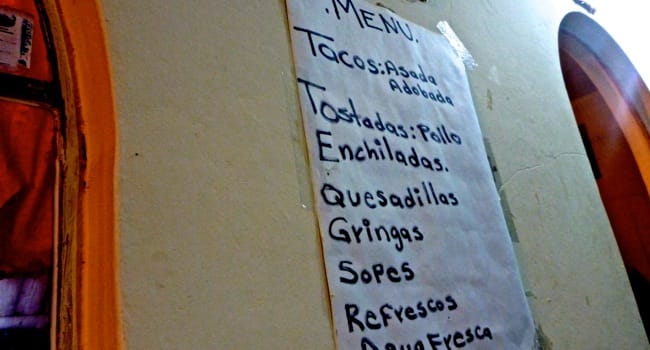 .MENU.
Tacos: Asada
Adobada
Tostadas: Pollo
Enchiladas.
Quesadillas
Gringas
Sopes
Refrescos
Agua Fresca